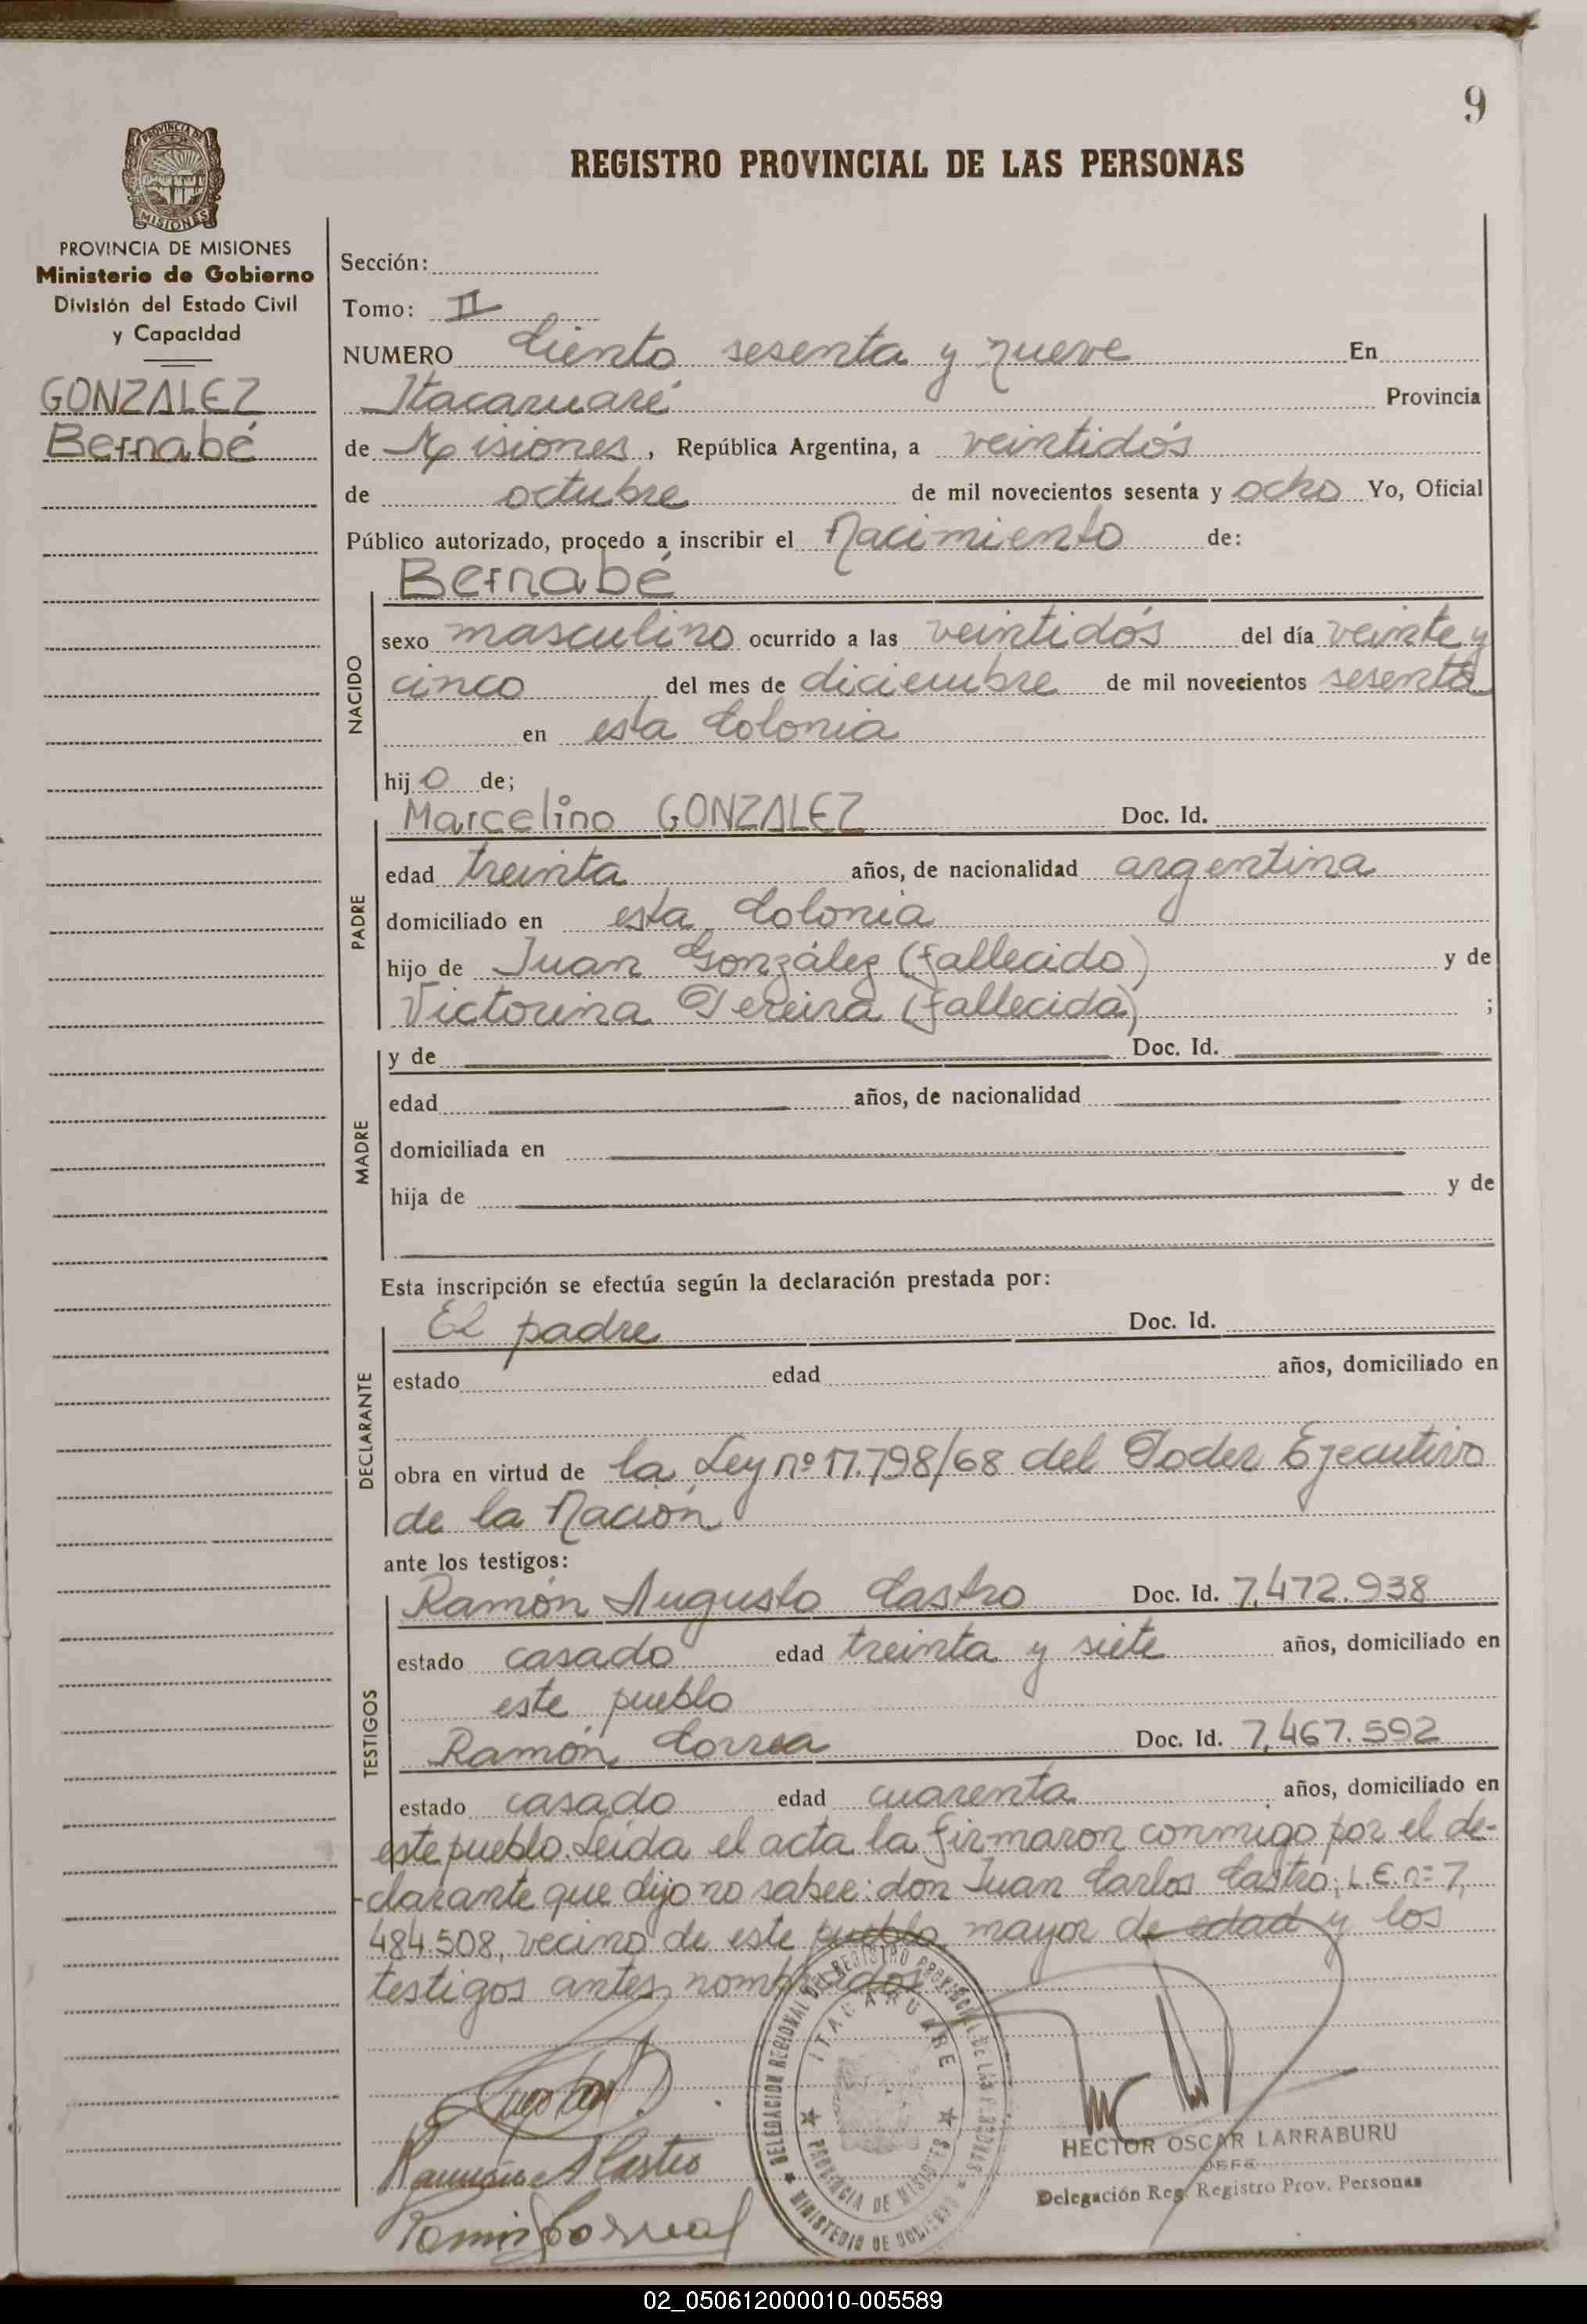 9
REGISTRO PROVINCIAL DE LAS PERSONAS
PROVINCIA DE
MISIONES
PROVINCIA DE MISIONES
Ministerio de Gobierno
División del Estado Civil
y Capacidad
GONZALEZ
Bernabé
Sección:
Tomo: II
NUMERO Ciento sesenta y nueve En
Itacaruaré Provincia
de Misiones, República Argentina, a veintidós
de octubre de mil novecientos sesenta y ocho Yo, Oficial
Público autorizado, procedo a inscribir el Nacimiento de:
NACIDO
Bernabé
sexo masculino ocurrido a las veintidós del día veinte y
cinco del mes de diciembre de mil novecientos sesenta
en esta Colonia
hijo de;
PADRE
Marcelino GONZALEZ Doc. Id.
edad treinta años, de nacionalidad argentina
domiciliado en esta Colonia
hijo de Juan González (fallecido) y de
Victorina Pereira (fallecida) ;
MADRE
y de Doc. Id.
edad años, de nacionalidad
domiciliada en
hija de y de
Esta inscripción se efectúa según la declaración prestada por:
DECLARANTE
El padre Doc. Id.
estado edad años, domiciliado en
obra en virtud de la Ley nº 17.798/68 del Poder Ejecutivo
de la Nación
ante los testigos:
TESTIGOS
Ramón Augusto Castro Doc. Id. 7,472.938
estado casado edad treinta y siete años, domiciliado en
este pueblo
Ramón Correa Doc. Id. 7,467.592
estado casado edad cuarenta años, domiciliado en
este pueblo. Leída el acta la firmaron conmigo por el de-
-clarante que dijo no saber: don Juan Carlos Castro, L.E. nº 7,
484.508, vecino de este pueblo, mayor de edad y los
testigos antes nombrados
DELEGACION REGIONAL DEL REGISTRO PROVINCIAL DE LAS PERSONAS
ITACARUARE
PROVINCIA DE MISIONES
MINISTERIO DE GOBIERNO
Ramón A Castro
Ramon Correa
HECTOR OSCAR LARRABURU
JEFE
Delegación Reg. Registro Prov. Personas
02_050612000010-005589